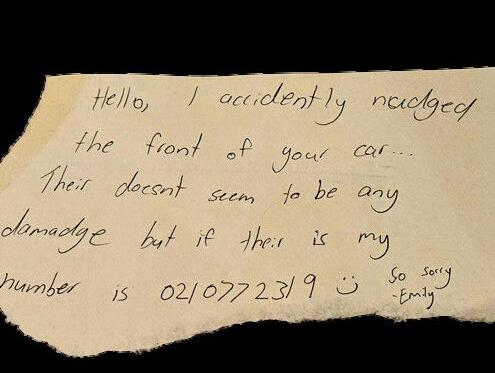 Hello, I accidently nudged
the front of your car...
Their doesnt seem to be any
damadge but if their is my
number is 0210772319 :)
So sorry
-Emily